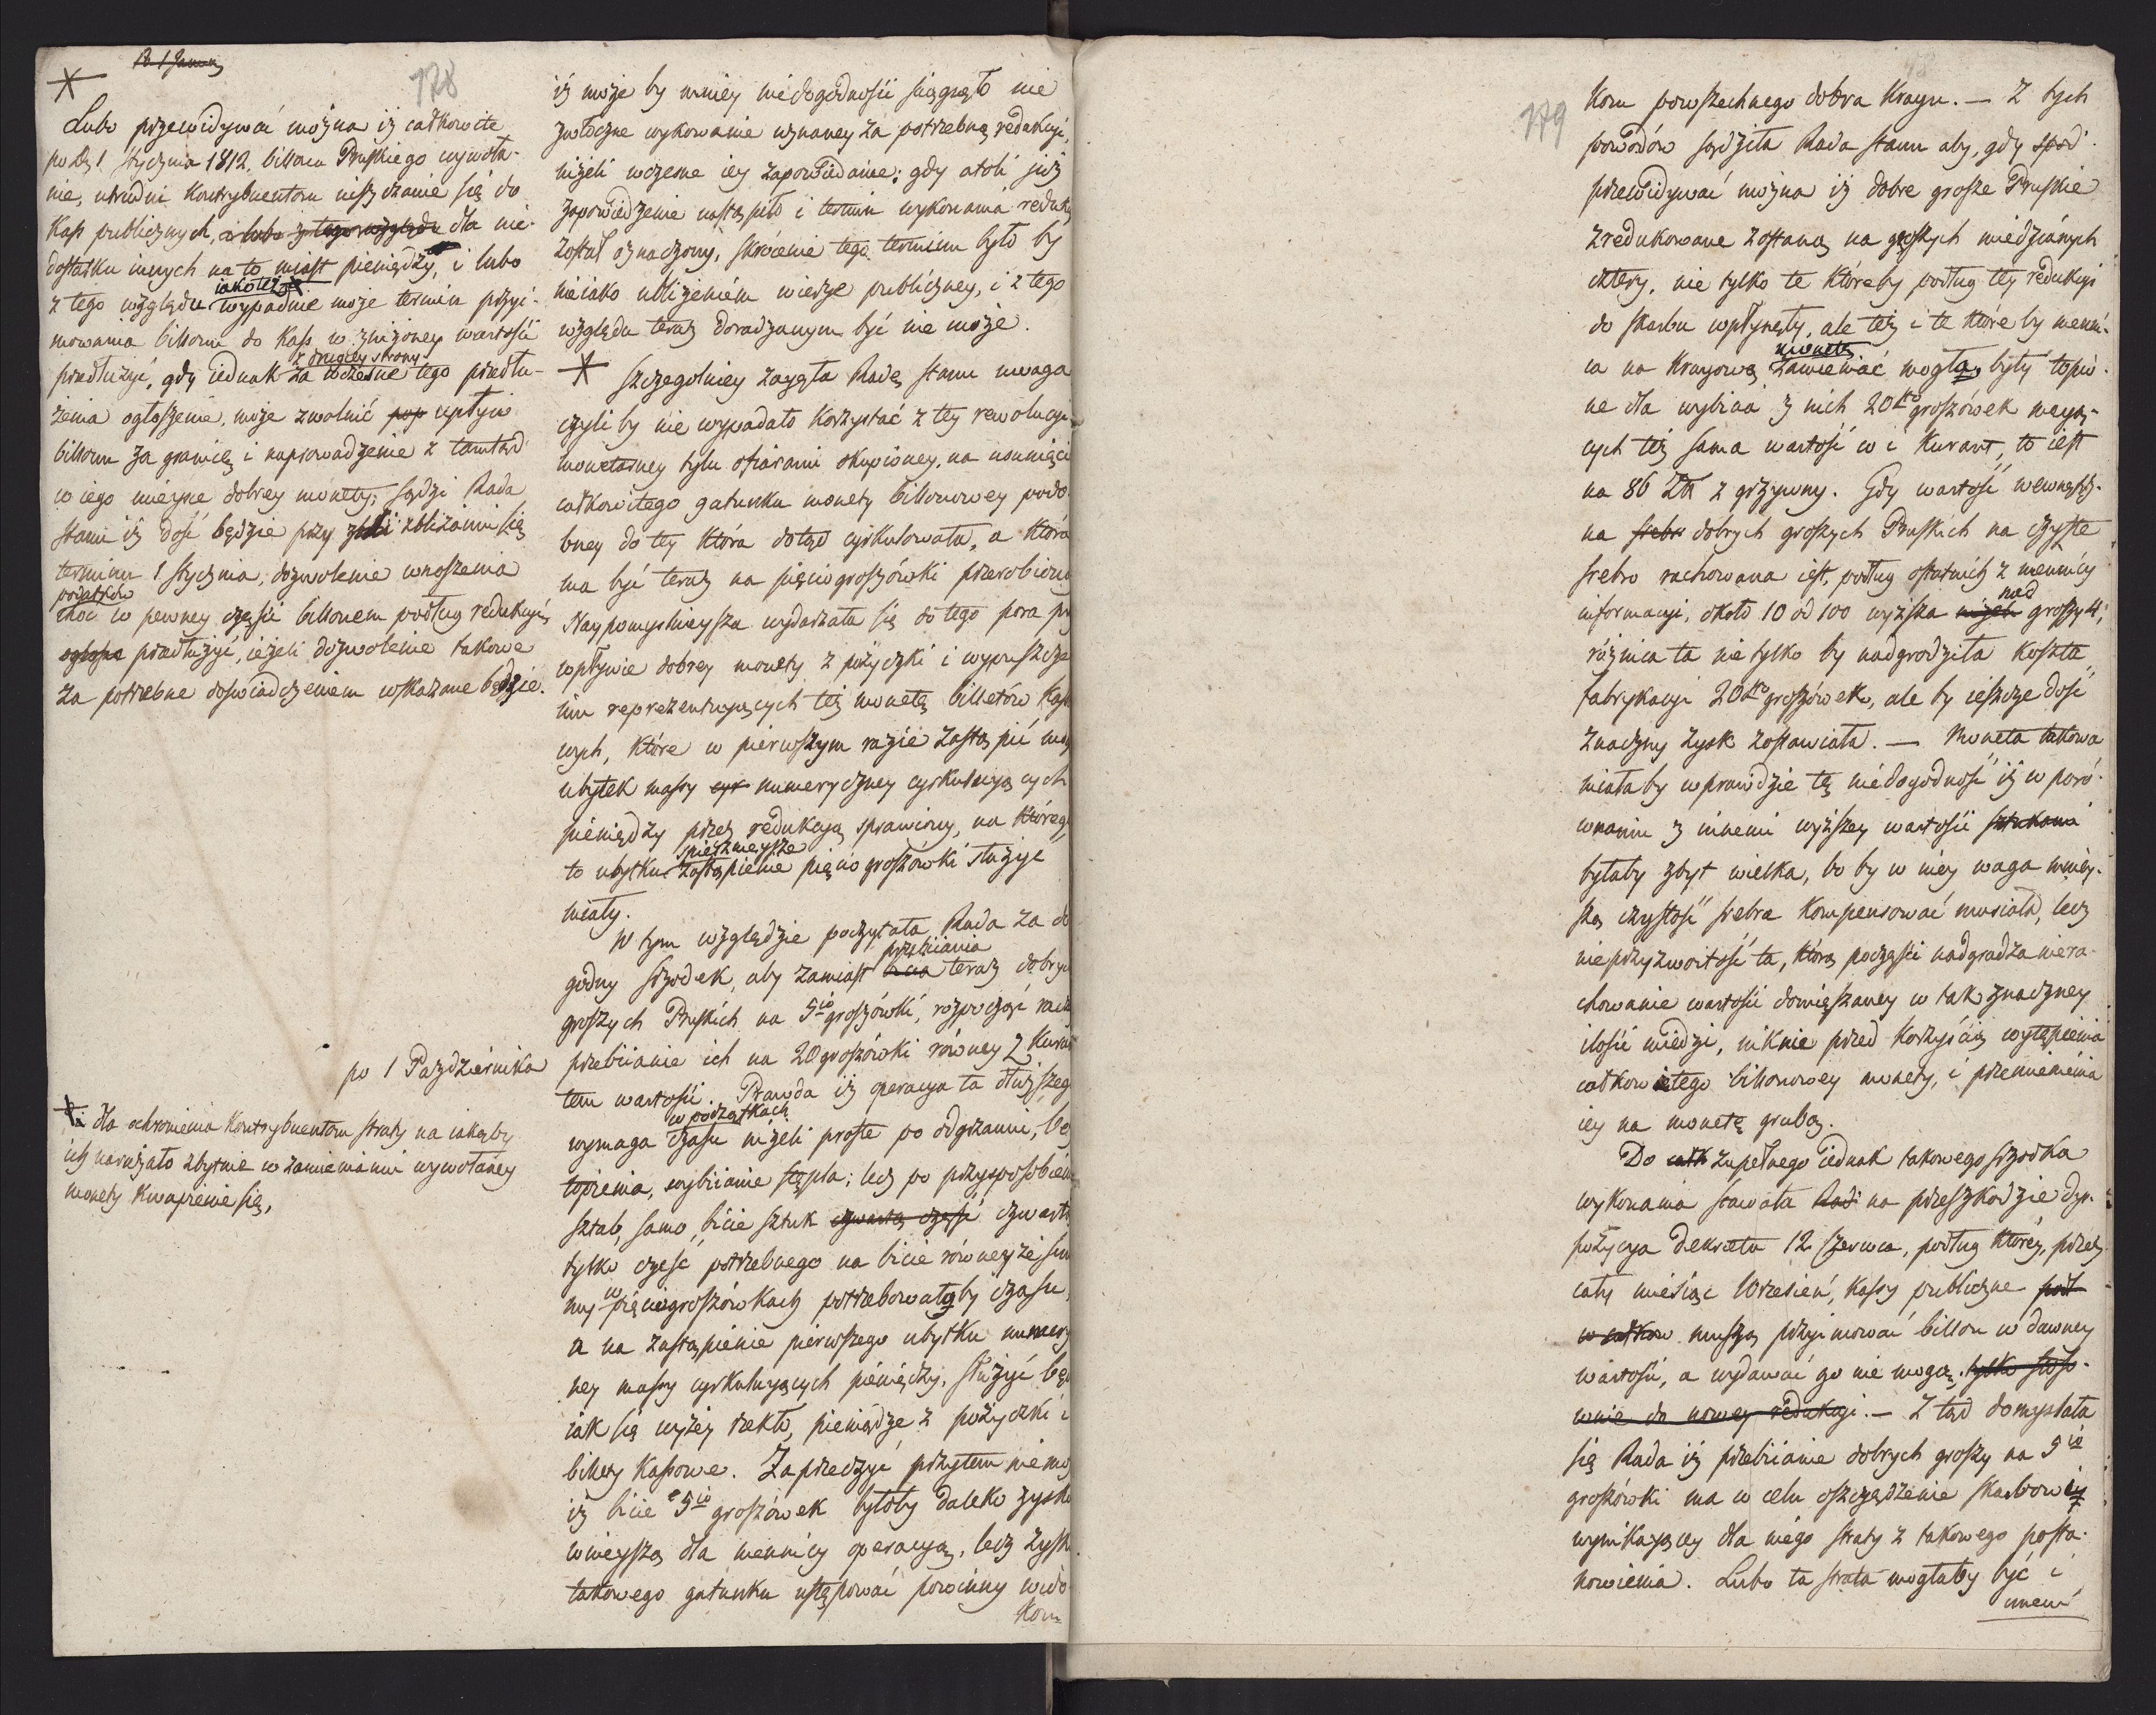 178
Lubo przewidywać można iż całkowite
po d. 1 Stycznia 1812. billonu Pruskiego wywoła-
nie, utrudni Kontrybuentom uiszczanie się do
Kass publicznych, a lubo z tego względu dla nie-
dostatku innych na to miast pieniędzy, i lubo
z tego względu iakotéż wypadnie może termin przyi-
mowania billonu do Kass w zniżoney wartości
przedłużyć, gdy iednak z drugiey strony za wczesne tego przedłu-
żenia ogłoszenie, może zwolnić upływ
billonu za granicę i naprowadzenie z tamtąd
w iego mieysce dobrey monety; sądzi Rada
Stanu iż dość będzie przy zbliżaniu się
terminu 1 Stycznia, dozwolenie wnoszenia
podatków choć w pewney części billonem podług redukcyi,
przedłużyć, ieżeli dozwolenie takowe
za potrzebne doświadczeniem wskazane będzie.
po 1 Października
dla ochronienia Kontrybuentom straty na iakąby
ich narażało zbytnie w zamienianiu wywołaney
monety kwapienie się,
iż może by mniey niedogodności siągnęło nie
zwłoczne wykonanie uznaney za potrzebną redukcyi,
niżeli wczesne iey zapowiedanie; gdy atoli iuż
zapowiedzenie nastąpiło i termin wykonania redukc
został oznaczony, skrócenie tego terminu było by
nieiako ubliżeniem wierze publiczney, i z tego
względu teraz doradzanym być nie może.
Szczegolniey zaięła Radę Stanu uwaga
czyli by nie wypadało korzystać z tey rewolucyi
monetarney tylu ofiarami okupioney, na usunięci
całkowitego gatunku monety billonowey podo-
bney do tey która dotąd cyrkulowała, a która
ma być teraz na pięciogroszówki przerobiona
Naypomyślnieysza wydarzała się do tego pora pr
wpływie dobrey monety z pożyczki i wypuszcze
niu reprezentuiących też monetę billetów Kass
wych, które w pierwszym razie zastąpić mog
ubytek massy cyr numeryczney cyrkuluiących
pieniędzy przez redukcyą sprawiony, na którego
to ubytku spiesznieysze zastąpienie pięciogroszówki służyć
miały.
W tym względzie poczytała Rada za do
godny środek, aby zamiast przebiiania teraz dobrych
groszych Pruskich na 5io groszówki, rozpocząć racz
przebiianie ich na 20 groszówki równey z Kuran
tem wartości. Prawda iż operacya ta dłuższeg
wymaga w początkach czasu niżeli proste po odgrzaniu, be
topienia, wybiianie stępla; lecz po przysposobieni
sztab, samo bicie sztuk czwartą część czwartą
tylko część potrzebnego na bicie równeyże sum
my w pięciogroszówkach potrzebowałoby czasu,
a na zastąpienie pierwszego ubytku numery
ney massy cyrkuluiących pieniędzy, służyć będ
iak się wyżey rzekło, pieniądze z pożyczki i
bilety Kassowe. Zaprzeczyć przytem nie moż
iż bicie 5io groszówek byłoby daleko zysko
wnieyszą dla mennicy operacyą, lecz zysk
takowego gatunku ustępować powinny wido
kom
179
kom powszechnego dobra Krayu. — Z tych
powodów sądziła Rada Stanu aby, gdy spod
przewidywać można iż dobre grosze Pruskie
zredukowane zostaną na groszych miedzianych
cztery, nie tylko te któreby podług tey redukcyi
do skarbu wpłynęły, ale też i te które by menni-
ca na kraiową monetę zamieniać mogła, były topio-
ne dla wybicia z nich 20to groszówek maią-
cych tęż sama wartość w i Kurant, to iest
na 86 Złt z grzywny. Gdy wartość wewnętrz-
na srebr dobrych groszych Pruskich na czyste
srebro rachowana iest, podług ostatnich z mennicy
informacyi, około 10 od 100 wyższa niżeli nad groszy 4;
różnica ta nie tylko by nadgrodziła koszta
fabrykacyi 20to groszówek, ale by ieszcze dość
znaczny zysk zostawiała. — Moneta takowa
miałaby wprawdzie tę niedogodność iż w poró-
wnaniu z innemi wyższey wartości sztukami
byłaby zbyt wielka, bo by w niey waga mniey-
szą czystość srebra kompensować musiała, lecz
nieprzyzwoitość ta, którą poczęści nadgradza niera-
chowanie wartości domięszaney w tak znaczney
ilości miedzi, niknie przed korzyścią wytępienia
całkowitego billonowey monety, i przemienienia
iey na monetę grubą.
Do całk zupełnego iednak takowego środka
wykonania stawała Rad na przeszkodzie dys-
pozycya Dekretu 12 Czerwca, podług którey, przez
cały miesiąc Wrzesień, kassy publiczne pod
w całkow muszą przyimować billon w dawney
wartości, a wydawać go nie mogą, tylko stoso-
wnie do nowey redukcyi. — Z tąd domyślała
się Rada iż przebiianie dobrych groszy na 5io
groszówki ma w celu oszczędzenie skarbowi
wynikaiącey dla niego straty z takowego posta-
nowienia. Lubo ta strata mogłaby być i
innemi